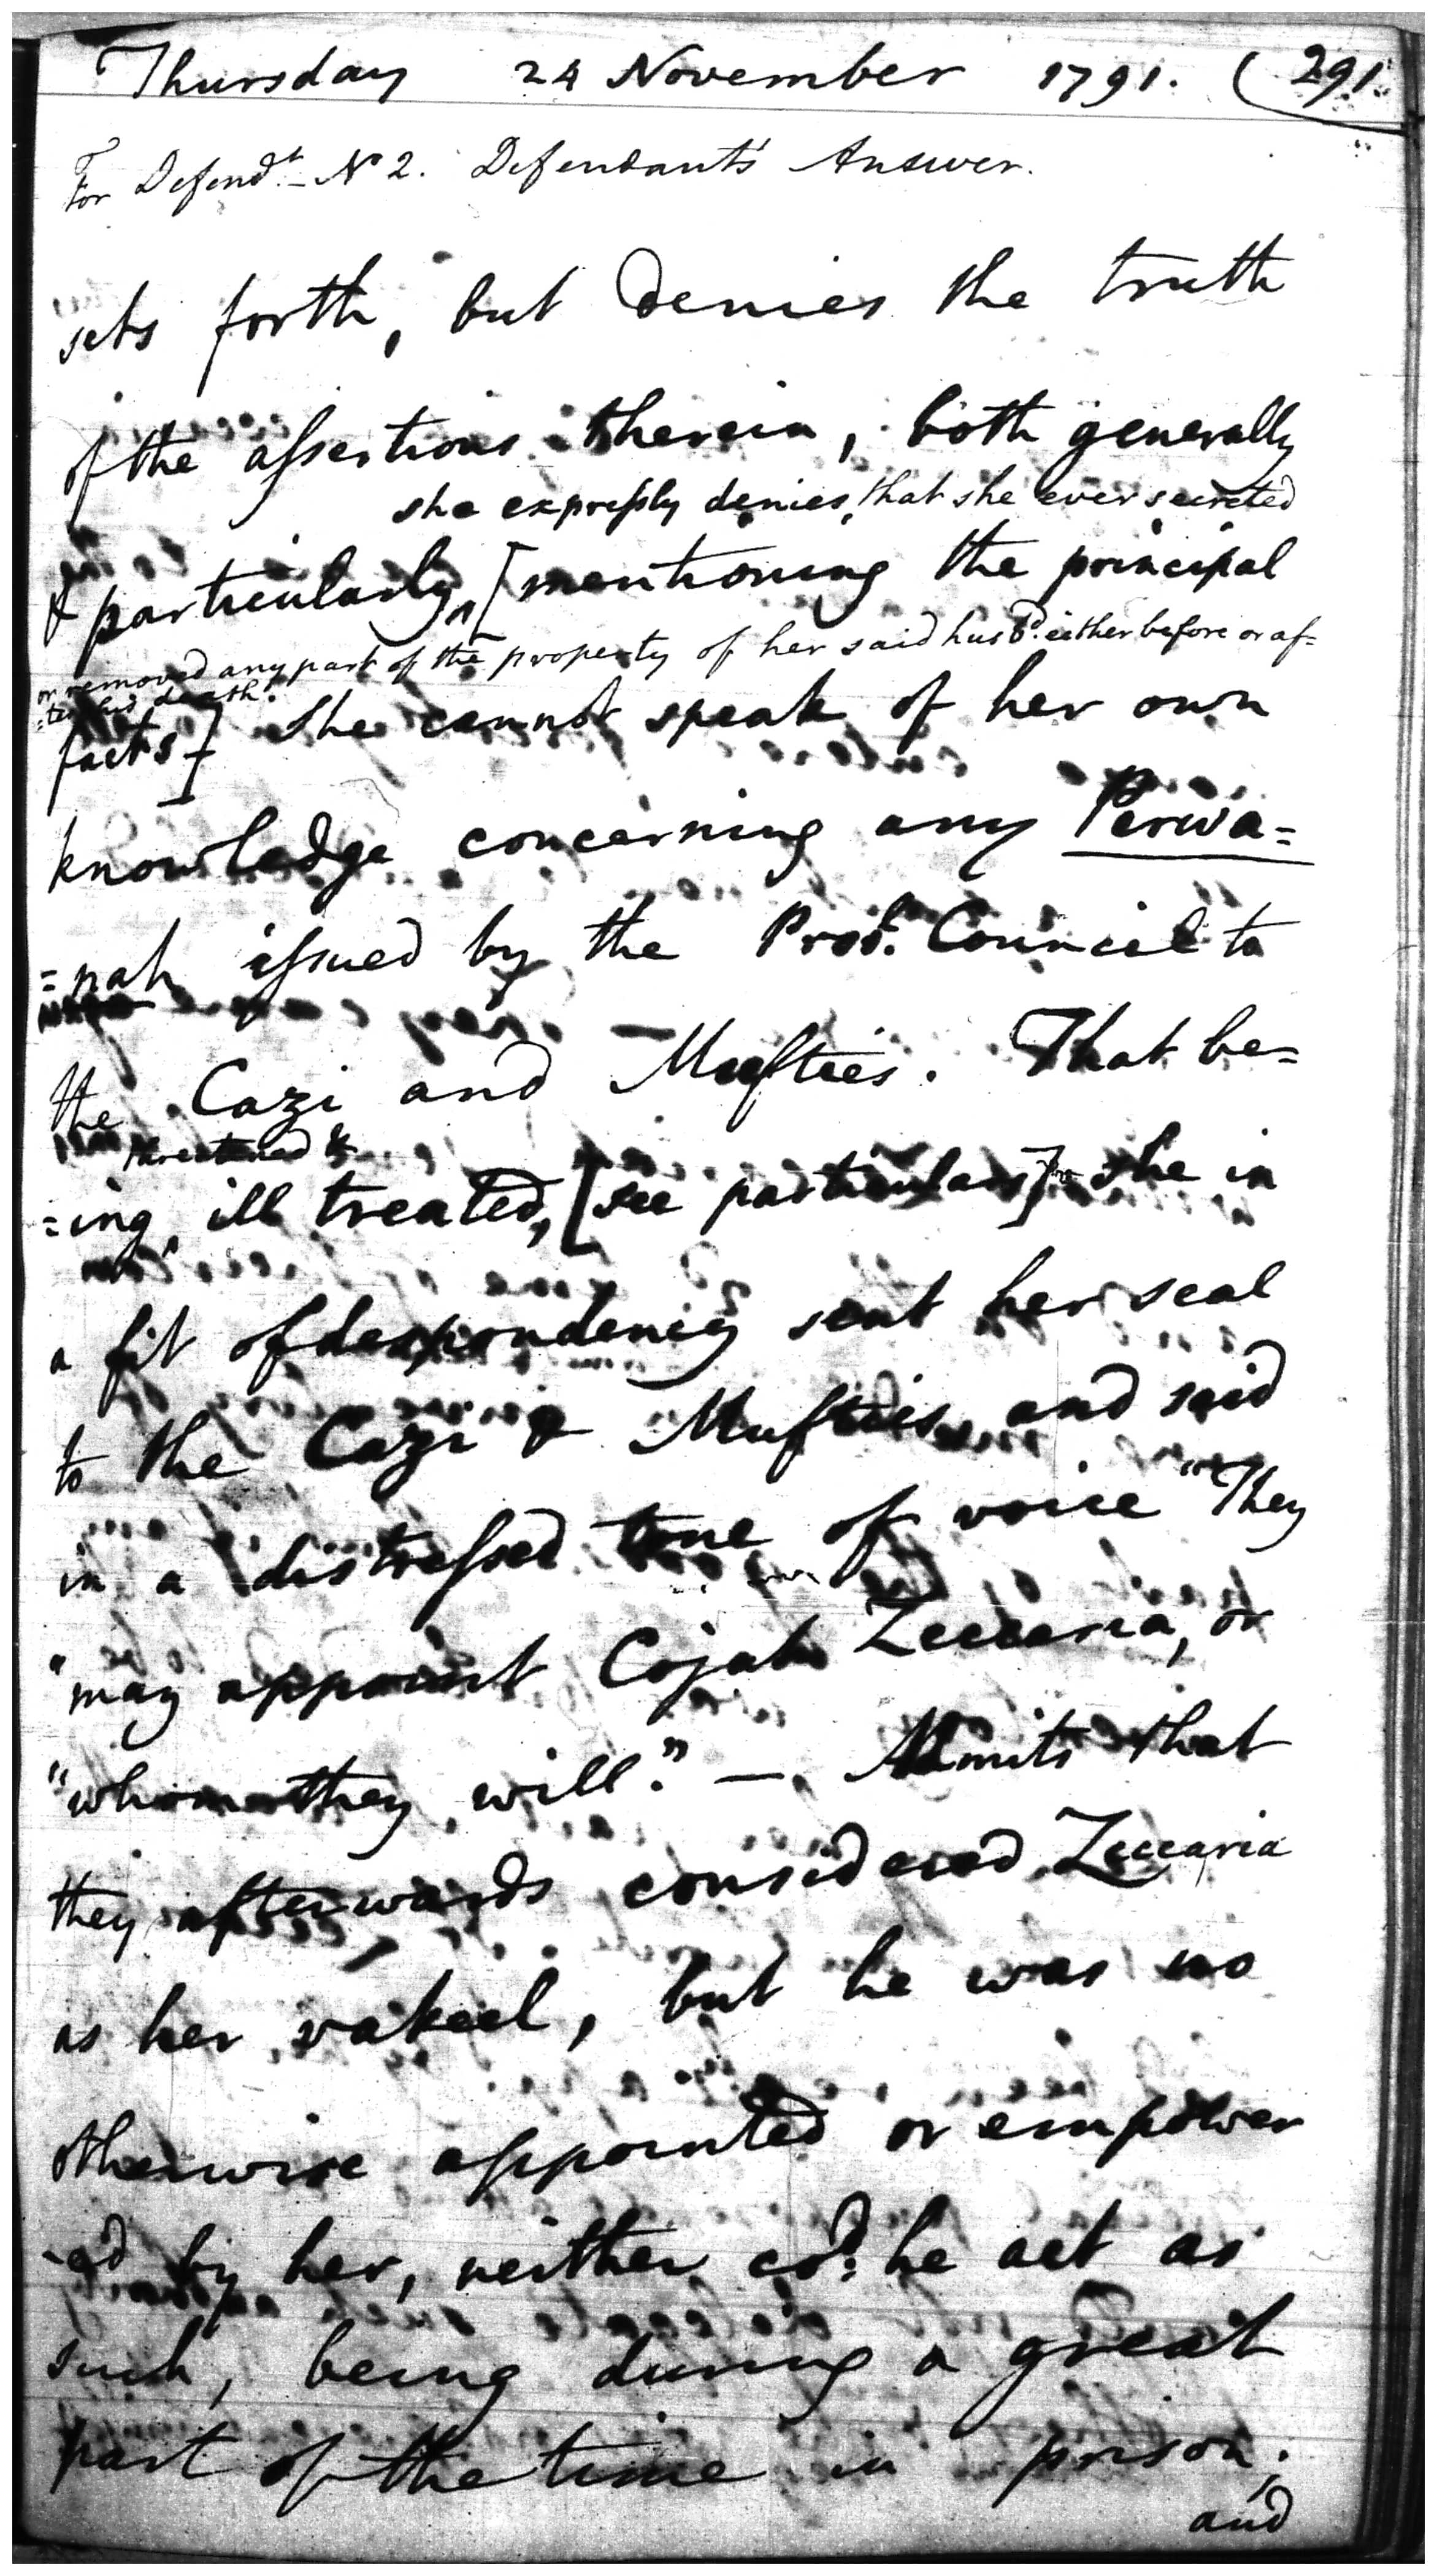 Thursday 24 November 1791. (291.
For Defendt. No 2. Defendant's Answer.
sets forth, but denies the truth
of the assertions therein, both generally
she expressly denies, that she ever secreted
& particularly, [mentioning the principal
or removed any part of the property of her said husbd. either before or af=
=ter his death.
facts] She cannot speak of her own
knowledge concerning any Perwa=
=nah issued by the Provl. Council to
the Cazi and Mufties. That be=
threatened &
=ing ill treated, [see particulars] she in
a fit of despondency sent her seal
to the Cazi & Mufties, and said
in a distressed tone of voice "They
"may appoint Cojah Zeccaria, or
"whom they will." — Admits that
they afterwards considered Zeccaria
as her vakeel, but he was no
otherwise appointed or empower
-ed by her, neither cod: he act as
such, being during a great
part of the time in prison;
and